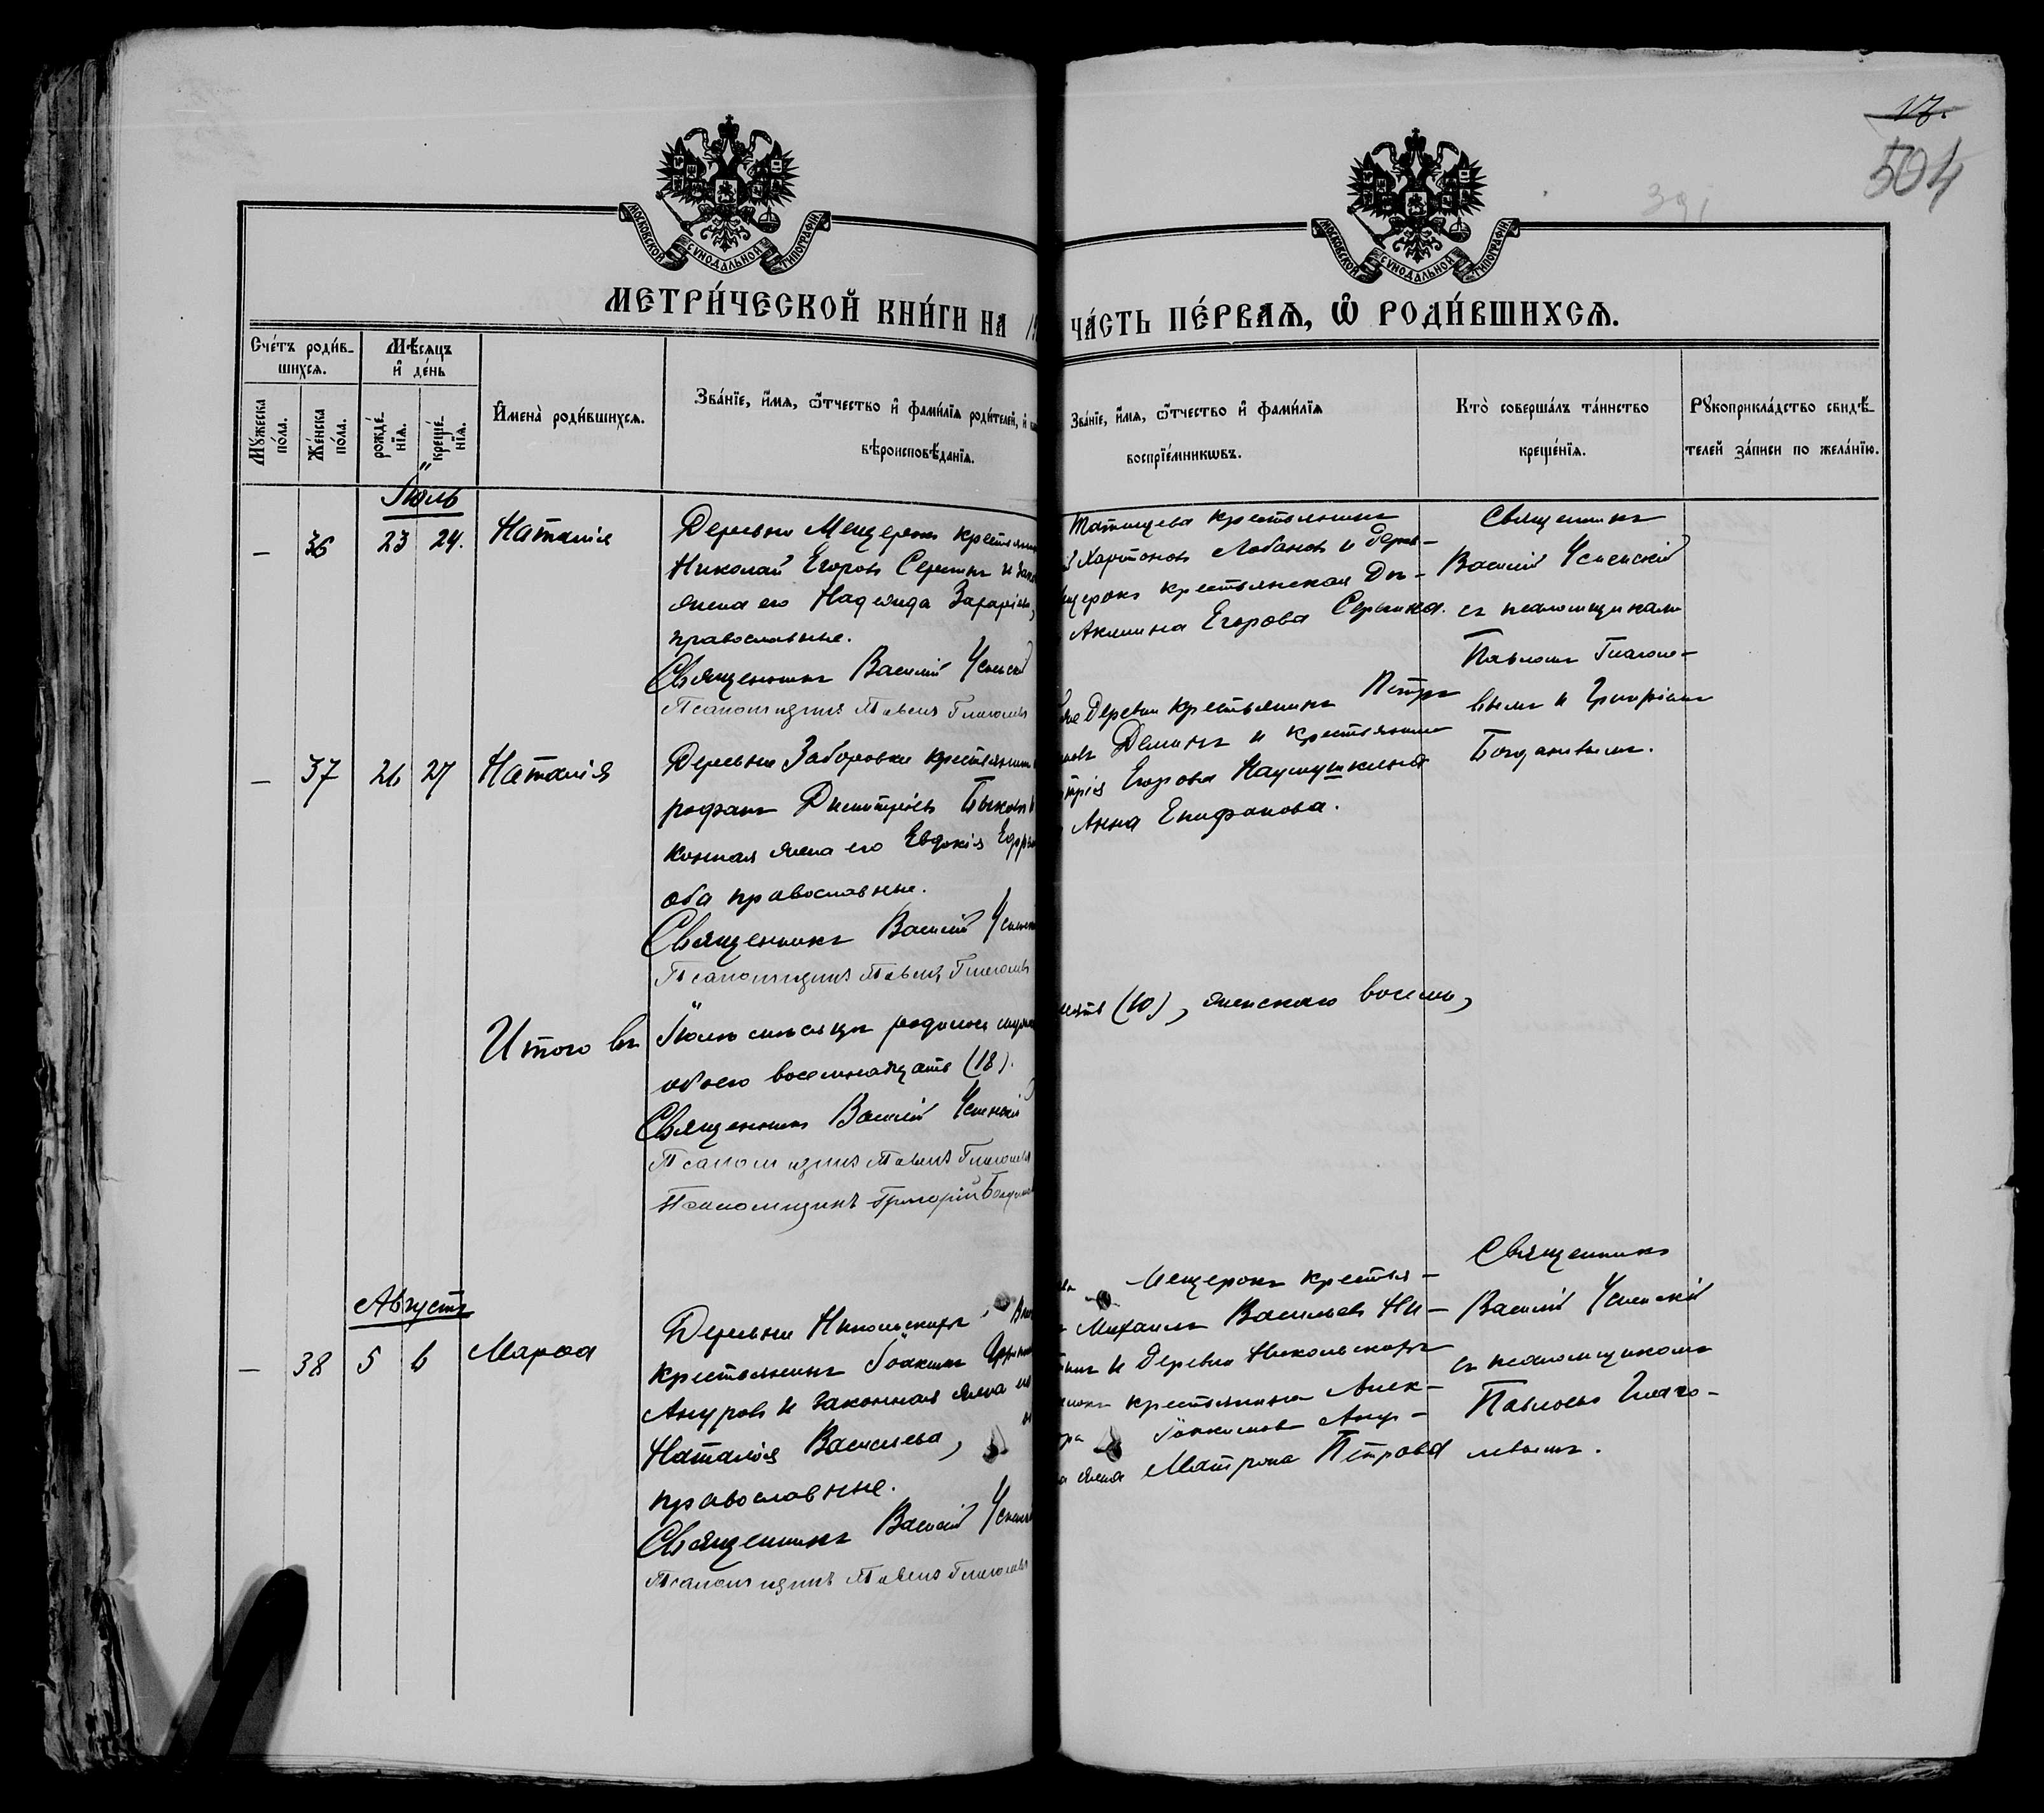 17.
504
391
МОСКОВСКОЙ СѴНОДАЛЬНОЙ ТИПОГРАФІИ
МОСКОВСКОЙ СѴНОДАЛЬНОЙ ТИПОГРАФІИ
МЕТРИ́ЧЕСКОЙ КНИ́ГИ НА 19
ЧА́СТЬ ПЕ́РВАѦ, Ѽ РОДИ́ВШИХСѦ.
Сче́тъ роди́в-
шихсѧ.
Мꙋжеска по́ла.
Же́нска по́ла.
Мѣ́сѧцъ и҆ де́нь
рожде́-
нїѧ.
креще́-
нїѧ.
И҆мена̀ роди́вшихсѧ.
Зва́нїе, и҆́мѧ, ѻ҆́тчество и҆ фами́лїѧ роди́телей, и҆
вѣроисповѣ́данїѧ.
Зва́нїе, и҆́мѧ, ѻ҆́тчество и҆ фами́лїѧ
воспрїе́мникѡвъ.
Кто̀ соверша́лъ та́инство
креще́нїѧ.
Рꙋкоприкла́дство свидѣ́-
телей за́писи по жела́нїю.
Іюль
— 36 23 24. Наталія
Деревни Мещерокъ крестьянинъ
Николай Егоровъ Серегинъ и зако
жена его Надежда Захаріева,
православные.
Священникъ Василій Успенскій
Псаломщикъ Павелъ Глаголевъ
Татищева крестьянинъ
Харитоновъ Лобановъ и дерев-
щерокъ крестьянская дѣ-
Акилина Егорова Серегина.
Священникъ
Василій Успенскій
съ псаломщиками
Павломъ Глаголе-
вымъ и Григоріемъ
Богдановымъ.
— 37 26 27 Наталія
Деревни Заборовки крестьянинъ
рофанъ Димитріевъ Быковъ и
конная жена его Евдокія Ефр
оба православные.
Священникъ Василій Успенск
Псаломщикъ Павелъ Глаголевъ
же деревни крестьянинъ Петръ
Деминъ и крестьянина
трія Егорова Наумушкина
Анна Епифанова.
Итого въ Іюлѣ мѣсяцѣ родилось муж
обоего восемнадцать (18).
сять (10), женскаго восемь,
Священникъ Василій Успенскій
Псаломщикъ Павелъ Глаголевъ
Псаломщикъ Григорій Богданов
Августъ
— 38 5 6 Марѳа
Деревни Никольскаго,
крестьянинъ Іоакимъ
Ануровъ и законная жена его
Наталія Васильева,
православные.
Священникъ Василій Успенскій
Псаломщикъ Павелъ Глаголевъ
Мещерокъ крестья-
Михаилъ Васильевъ Ни-
и деревни Никольскаго
крестьянина Алек-
Іоакимова Ану-
жена Матрона Петрова
Священникъ
Василій Успенскій
съ псаломщикомъ
Павломъ Глаго-
левымъ.